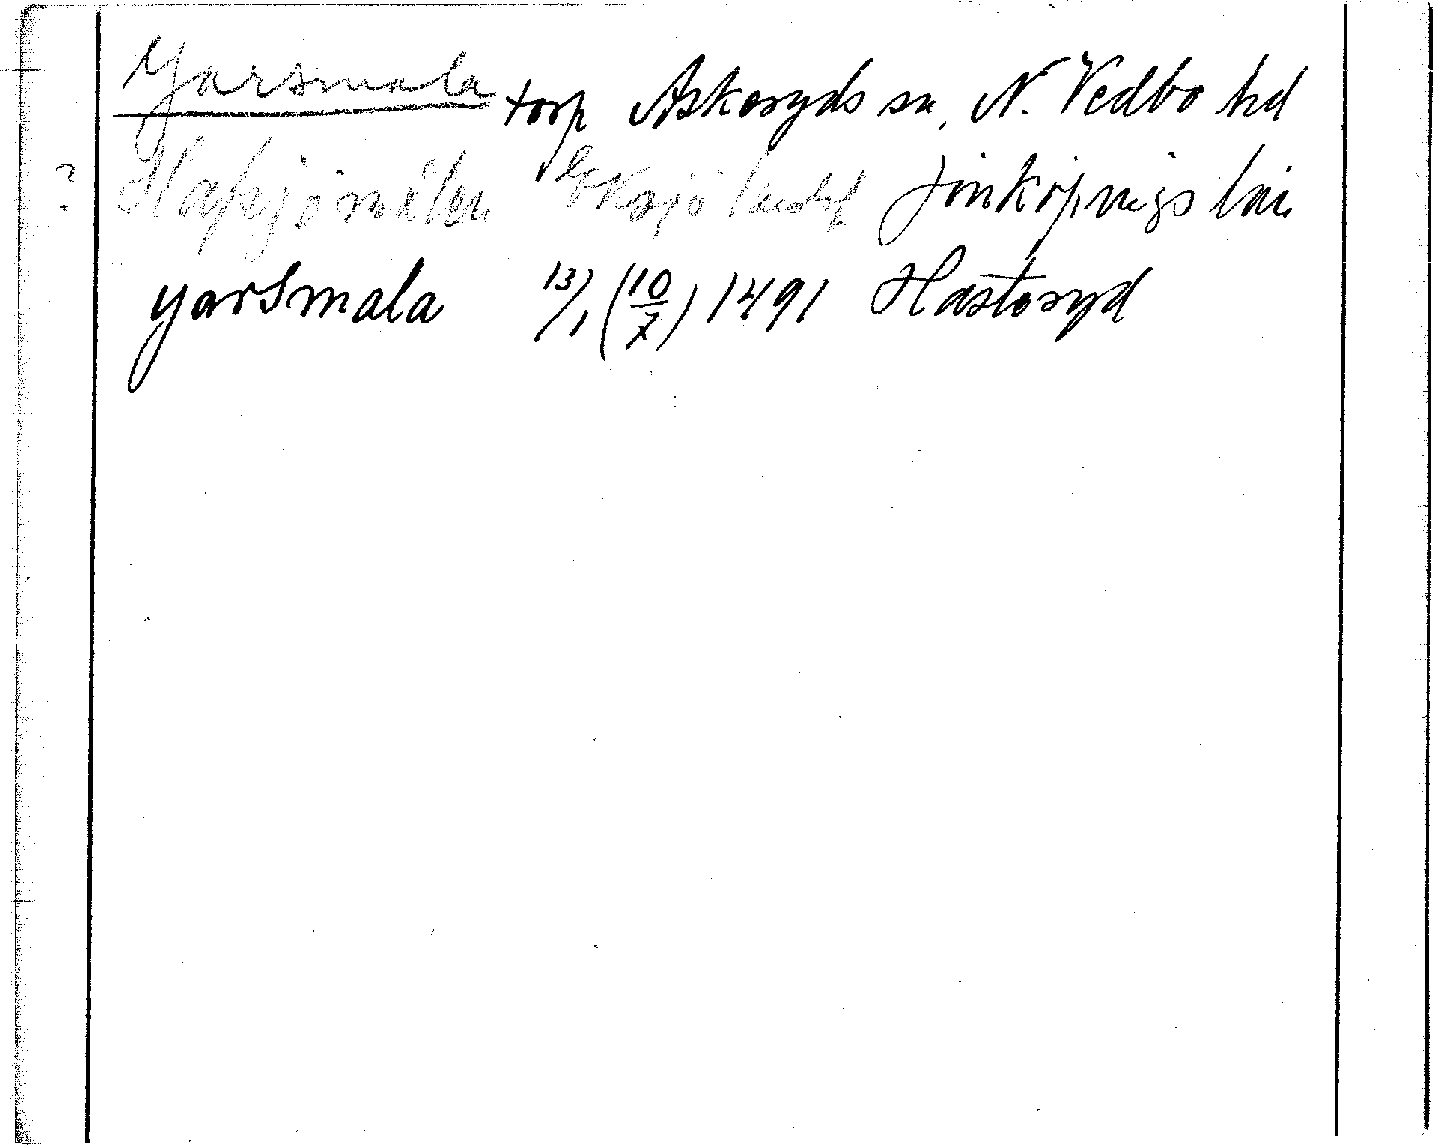 Yarsmala torp Askeryds sn, N. Vedbo hd
? Eksjö landsf Jönköpings län
yarsmala 13/1 (10/7) 1491 Hasteryd